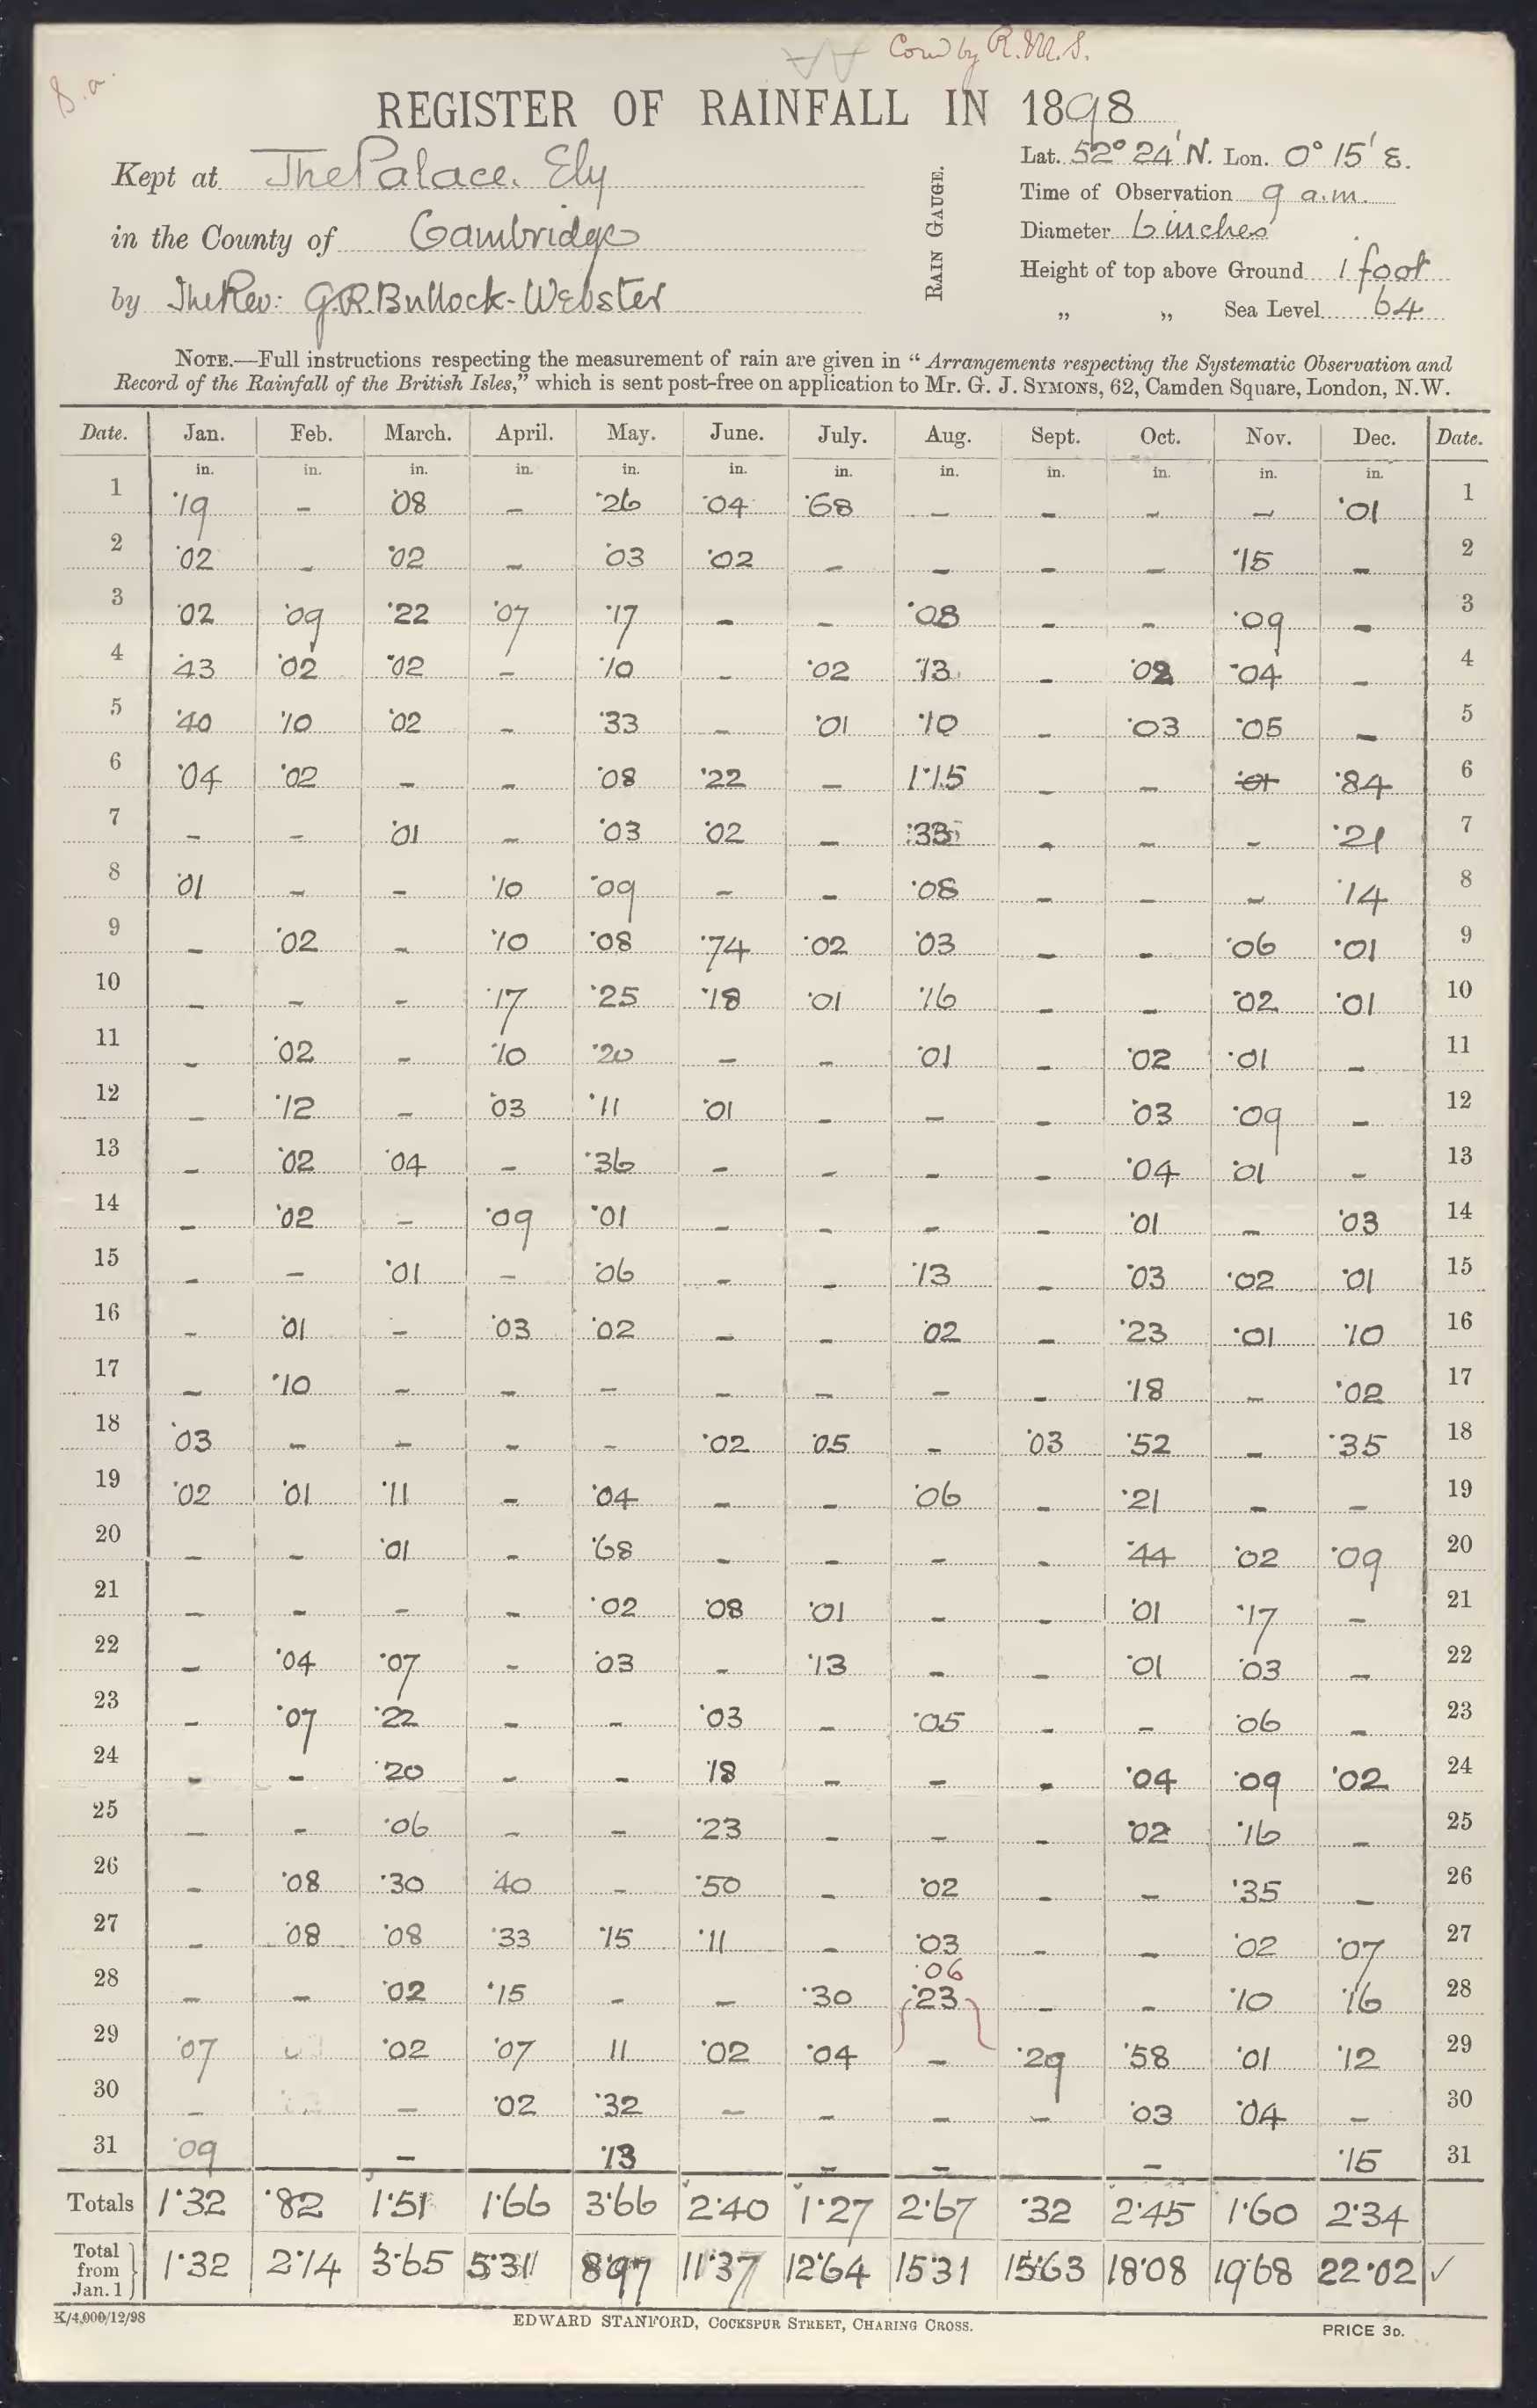 8.a.
Corr^d by R.M.S.
REGISTER OF RAINFALL IN 1898
Kept at The Palace. Ely
in the County of Cambridge
by The Rev: G.R. Bullock-Webster
RAIN GAUGE.
Lat. 52° 24' N. Lon. 0° 15' E.
Time of Observation 9 a.m.
Diameter 6 inches
Height of top above Ground 1 foot
" " Sea Level 64
NOTE.—Full instructions respecting the measurement of rain are given in "Arrangements respecting the Systematic Observation and
Record of the Rainfall of the British Isles," which is sent post-free on application to Mr. G. J. SYMONS, 62, Camden Square, London, N.W.
Date. Jan. Feb. March. April. May. June. July. Aug. Sept. Oct. Nov. Dec. Date.
in. in. in. in. in. in. in. in. in. in. in. in.
1 ·19 - ·08 - ·26 ·04 ·68 - - - - ·01 1
2 ·02 - ·02 - ·03 ·02 - - - - ·15 - 2
3 ·02 ·09 ·22 ·07 ·17 - - ·08 - - ·09 - 3
4 ·43 ·02 ·02 - ·10 - ·02 ·13 - ·02 ·04 - 4
5 ·40 ·10 ·02 - ·33 - ·01 ·10 - ·03 ·05 - 5
6 ·04 ·02 - - ·08 ·22 - 1·15 - - ·01 ·84 6
7 - - ·01 - ·03 ·02 - ·33 - - - ·21 7
8 ·01 - - ·10 ·09 - - ·08 - - - ·14 8
9 - ·02 - ·10 ·08 ·74 ·02 ·03 - - ·06 ·01 9
10 - - - ·17 ·25 ·18 ·01 ·16 - - ·02 ·01 10
11 - ·02 - ·10 ·20 - - ·01 - ·02 ·01 - 11
12 - ·12 - ·03 ·11 ·01 - - - ·03 ·09 - 12
13 - ·02 ·04 - ·36 - - - - ·04 ·01 - 13
14 - ·02 - ·09 ·01 - - - - ·01 - ·03 14
15 - - ·01 - ·06 - - ·13 - ·03 ·02 ·01 15
16 - ·01 - ·03 ·02 - - ·02 - ·23 ·01 ·10 16
17 - ·10 - - - - - - - ·18 - ·02 17
18 ·03 - - - - ·02 ·05 - ·03 ·52 - ·35 18
19 ·02 ·01 ·11 - ·04 - - ·06 - ·21 - - 19
20 - - ·01 - ·68 - - - - ·44 ·02 ·09 20
21 - - - - ·02 ·08 ·01 - - ·01 ·17 - 21
22 - ·04 ·07 - ·03 - ·13 - - ·01 ·03 - 22
23 - ·07 ·22 - - ·03 - ·05 - - ·06 - 23
24 - - ·20 - - ·18 - - - ·04 ·09 ·02 24
25 - - ·06 - - ·23 - - - ·02 ·16 - 25
26 - ·08 ·30 ·40 - ·50 - ·02 - - ·35 - 26
27 - ·08 ·08 ·33 ·15 ·11 - ·03 - - ·02 ·07 27
·06
28 - - ·02 ·15 - - ·30 ·23 - - ·10 ·16 28
29 ·07 ·02 ·07 11 ·02 ·04 - ·29 ·58 ·01 ·12 29
30 - - ·02 ·32 - - - - ·03 ·04 - 30
31 ·09 - ·13 - - - ·15 31
Totals 1·32 ·82 1·51 1·66 3·66 2·40 1·27 2·67 ·32 2·45 1·60 2·34
Total from Jan. 1 } 1·32 2·14 3·65 5·31 8·97 11·37 12·64 15·31 15·63 18·08 19·68 22·02 ✓
K/4,000/12/98
EDWARD STANFORD, COCKSPUR STREET, CHARING CROSS.
PRICE 3D.